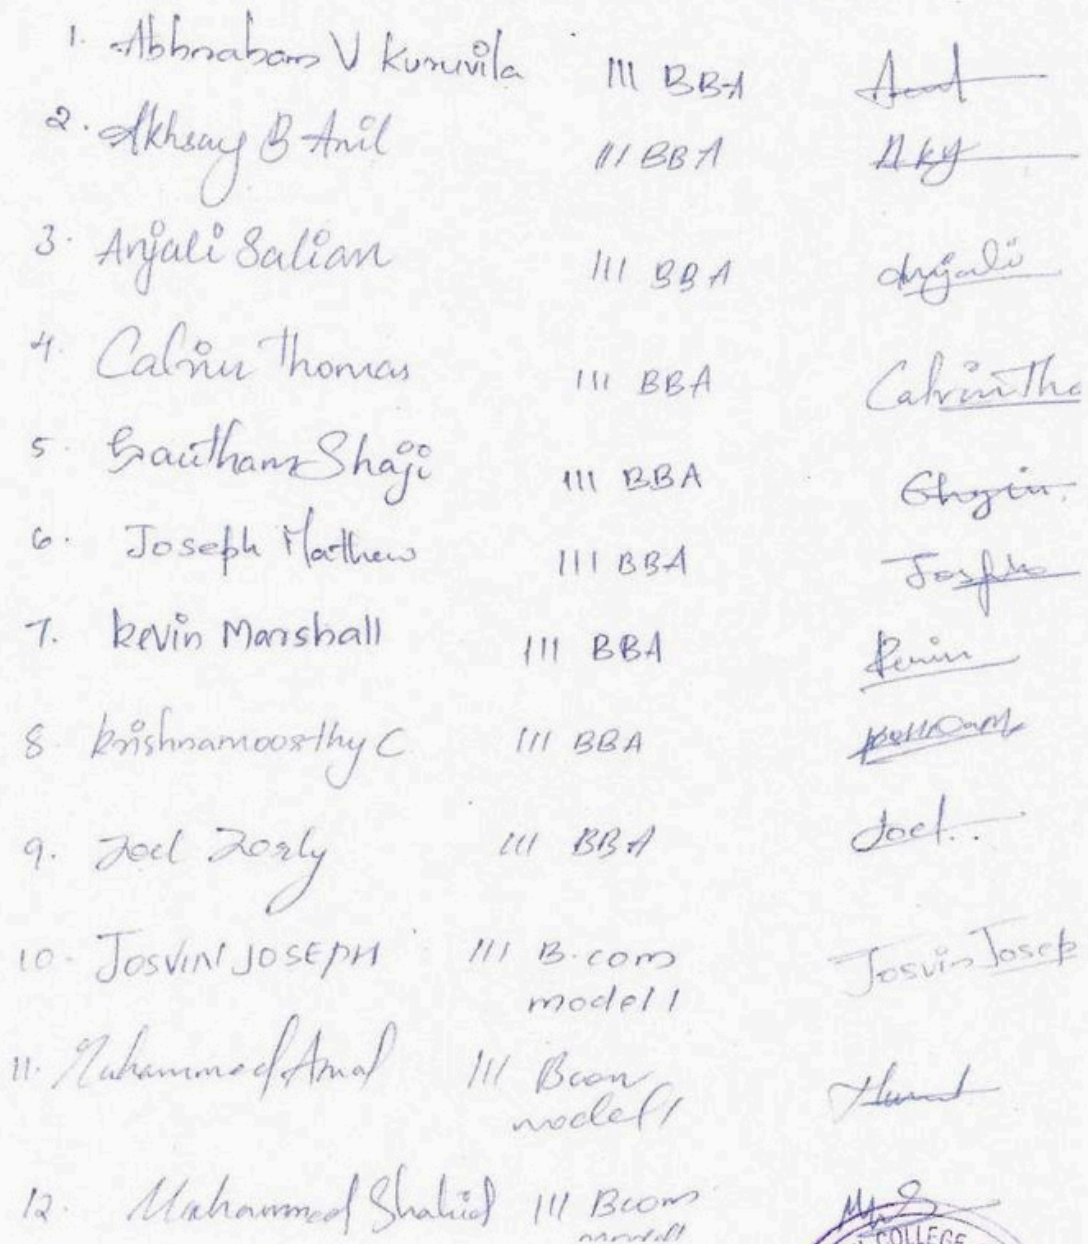 1. Abhraham V Kuruvila III BBA
2. Akhsay B Anil III BBA Aky
3. Anjali Salian III BBA Anjali
4. Calvin Thomas III BBA Calvin Tho
5. Gautham Shaji III BBA
6. Joseph Mathew III BBA Joseph
7. Kevin Marshall III BBA Kevin
8. Krishnamoorthy C III BBA
9. Joel Zorly III BBA Joel
10. JOSVIN JOSEPH III B.com Josvin Josep
model 1
11. Muhammed Amal III Bcom
model 1
12. Muhammed Shahid III Bcom MS
model 1
COLLEGE